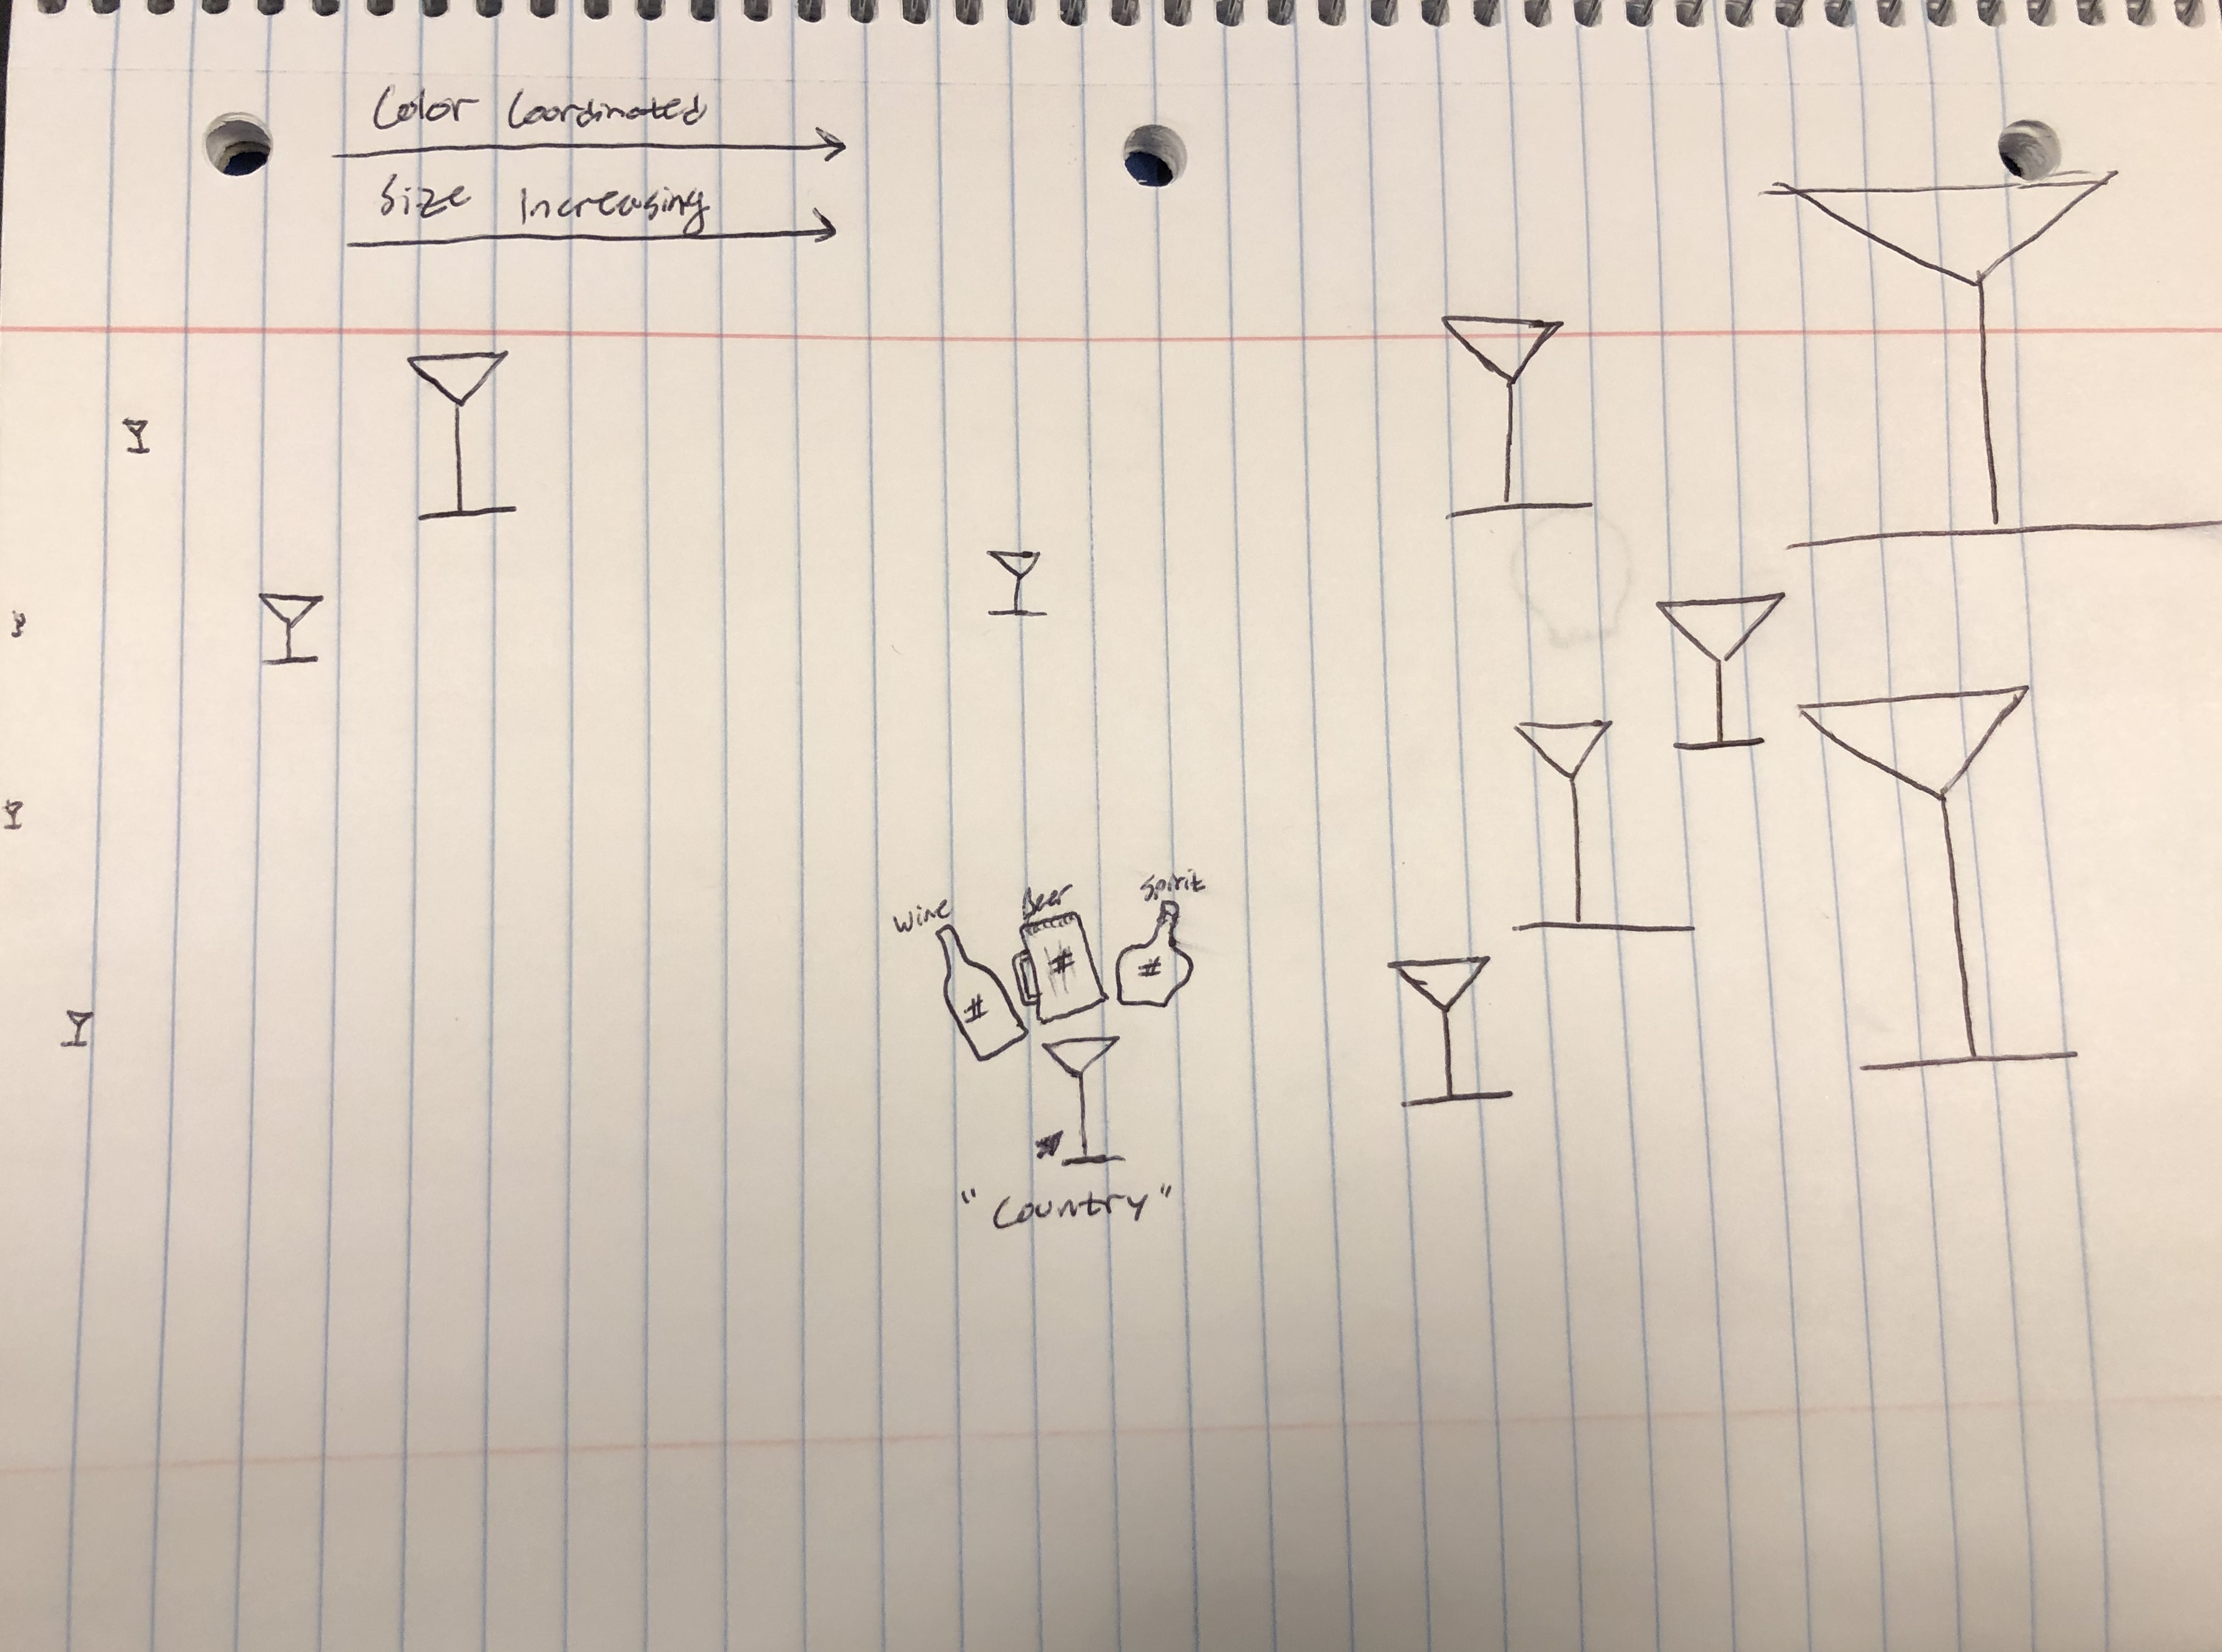 Color Coordinated
Size Increasing
Wine Beer Spirit
# # #
"Country"